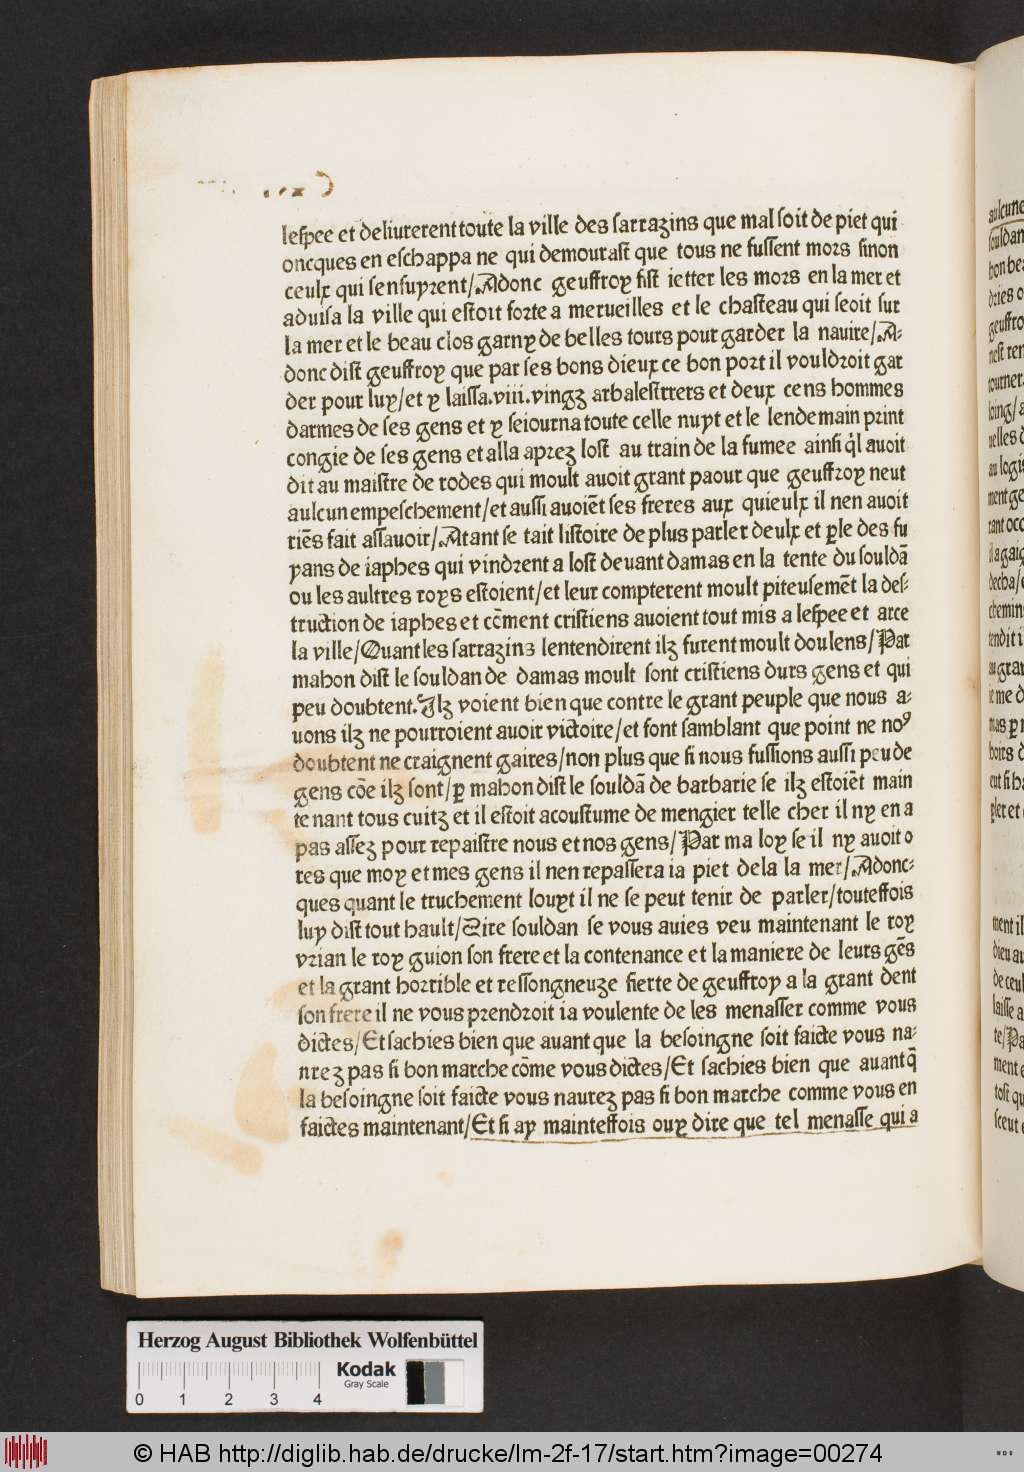 lespee et deliurerent toute la ville des sarrazins que mal soit de piet qui
oncques en eschappa ne qui demourast que tous ne fussent mors sinon
ceulx qui sensuyrent/Adonc geuffroy fist ietter les mors en la mer et
aduisa la ville qui estoit forte a merueilles et le chasteau qui seoit sur
la mer et le beau clos garny de belles tours pour garder la nauire/A-
donc dist geuffroy que par ses bons dieux ce bon port il vouldroit gar
der pour luy/et y laissa.viii.vingz arbalestriers et deux cens hommes
darmes de ses gens et y seiourna toute celle nuyt et le lendemain print
congie de ses gens et alla aprez lost au train de la fumee ainsi q̃l auoit
dit au maistre de rodes qui moult auoit grant paour que geuffroy neut
aulcun empeschement/et aussi auoiẽt ses freres aux quieulx il nen auoit
riẽs fait assauoir/Atant se tait listoire de plus parler deulx et ꝑle des fu
yans de iaphes qui vindrent a lost deuant damas en la tente du souldã
ou les aultres roys estoient/et leur compterent moult piteusemẽt la des-
truction de iaphes et cõment cristiens auoient tout mis a lespee et arce
la ville/Quant les sarrazins lentendirent ilz furent moult doulens/Par
mahon dist le souldan de damas moult sont cristiens durs gens et qui
peu doubtent. Ilz voient bien que contre le grant peuple que nous a-
uons ilz ne pourroient auoir victoire/et font samblant que point ne noꝰ
doubtent ne craignent gaires/non plus que si nous fussions aussi peu de
gens cõe ilz sont/ꝑ mahon dist le souldã de barbarie se ilz estoiẽt main
tenant tous cuitz et il estoit acoustume de mengier telle cher il ny en a
pas assez pour repaistre nous et nos gens/Par ma loy se il ny auoit o
res que moy et mes gens il nen repassera ia piet dela la mer/Adonc-
ques quant le truchement louyt il ne se peut tenir de parler/touteffois
luy dist tout hault/Sire souldan se vous auies veu maintenant le roy
vrian le roy guion son frere et la contenance et la maniere de leurs gẽs
et la grant horrible et ressongneuze fierte de geuffroy a la grant dent
son frere il ne vous prendroit ia voulente de les menasser comme vous
dictes/Et sachies bien que auant que la besoingne soit faicte vous na-
urez pas si bon marche cõme vous dictes/Et sachies bien que auant q̃
la besoingne soit faicte vous naurez pas si bon marche comme vous en
faictes maintenant/Et si ay mainteffois ouy dire que tel menasse qui a
Herzog August Bibliothek Wolfenbüttel
Kodak
Gray Scale
0 1 2 3 4
© HAB http://diglib.hab.de/drucke/lm-2f-17/start.htm?image=00274